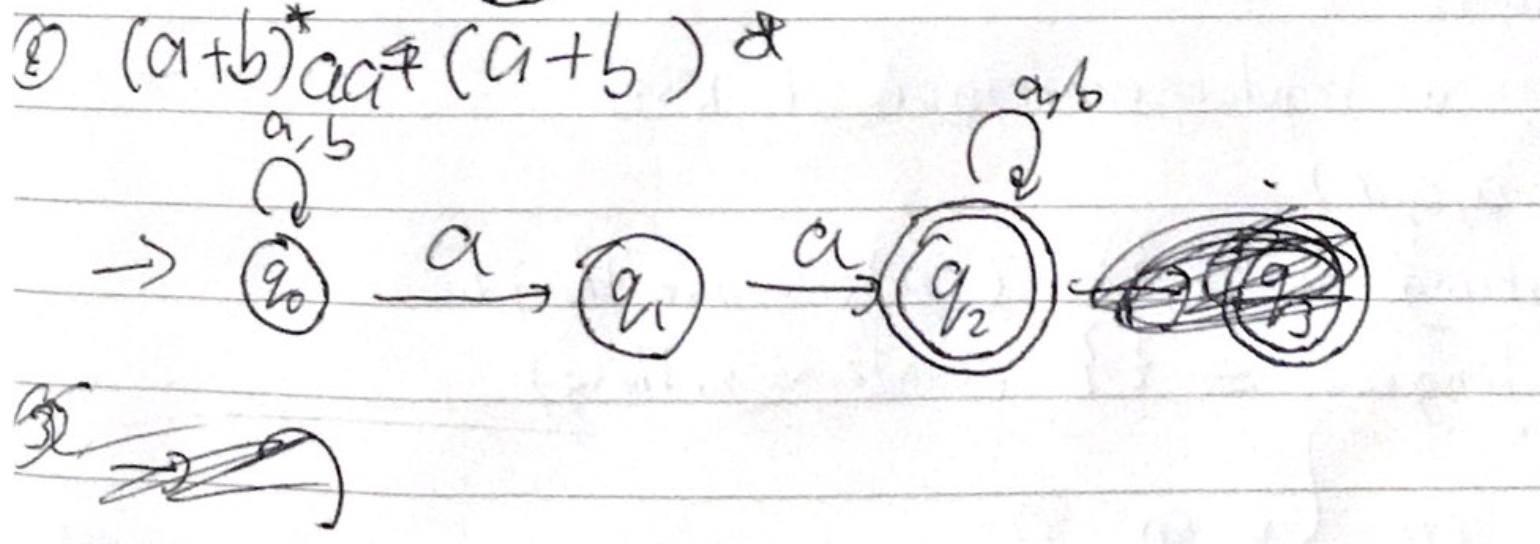 ② (a+b)*aa(a+b)*
a,b a,b
→ q₀ a → q₁ a → q₂ → q₃